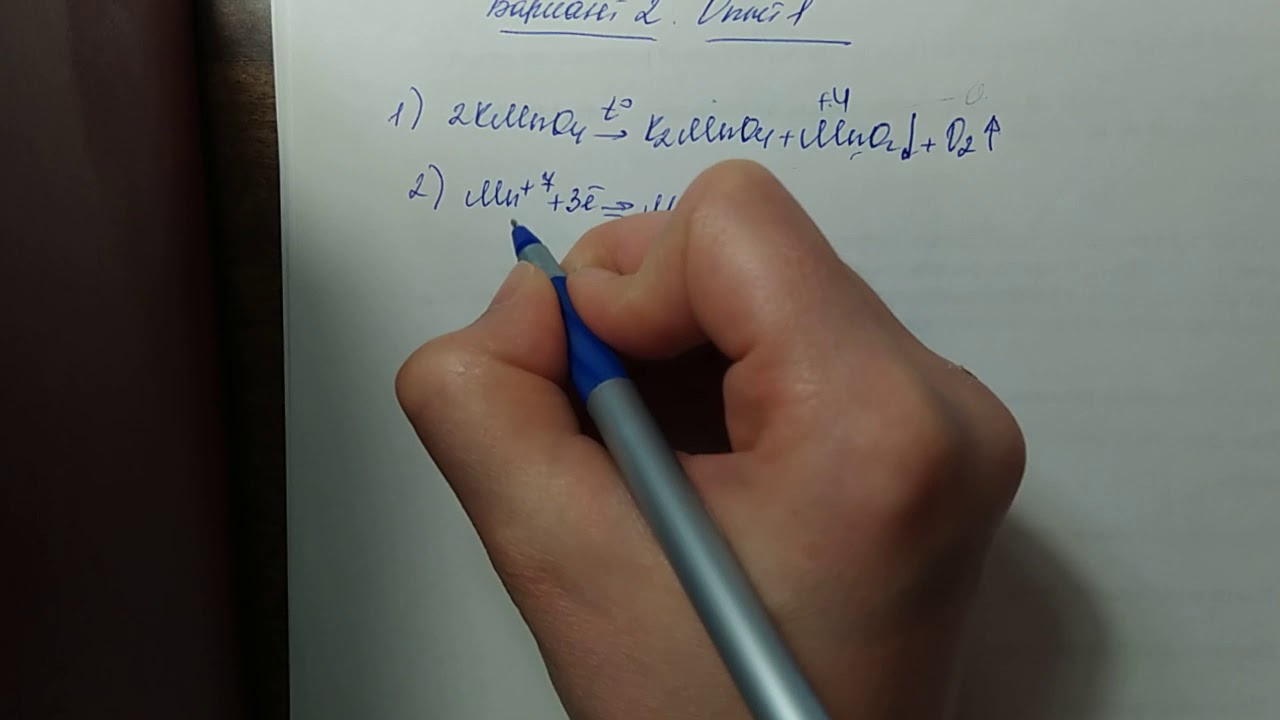 Вариант 2. Опыт 1
1) 2KMnO4 t° → K2MnO4 + MnO2↓ + O2↑
+4
2) Mn+7 +3ē ⇒ M